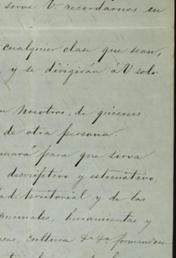 serva V. recordarnos en
cualquier clase que sean,
y se dirigirán á V. solo
nosotros, de quienes
de otra persona.
mará para que sirva
descriptivo y estimativo
dad territorial y de las
animales, herramientas y
cultura &a &a formandose